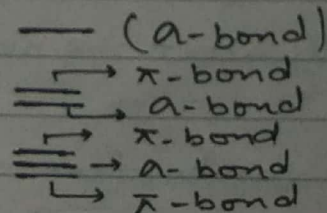 — (a-bond)
π-bond
a-bond
π-bond
a-bond
π-bond